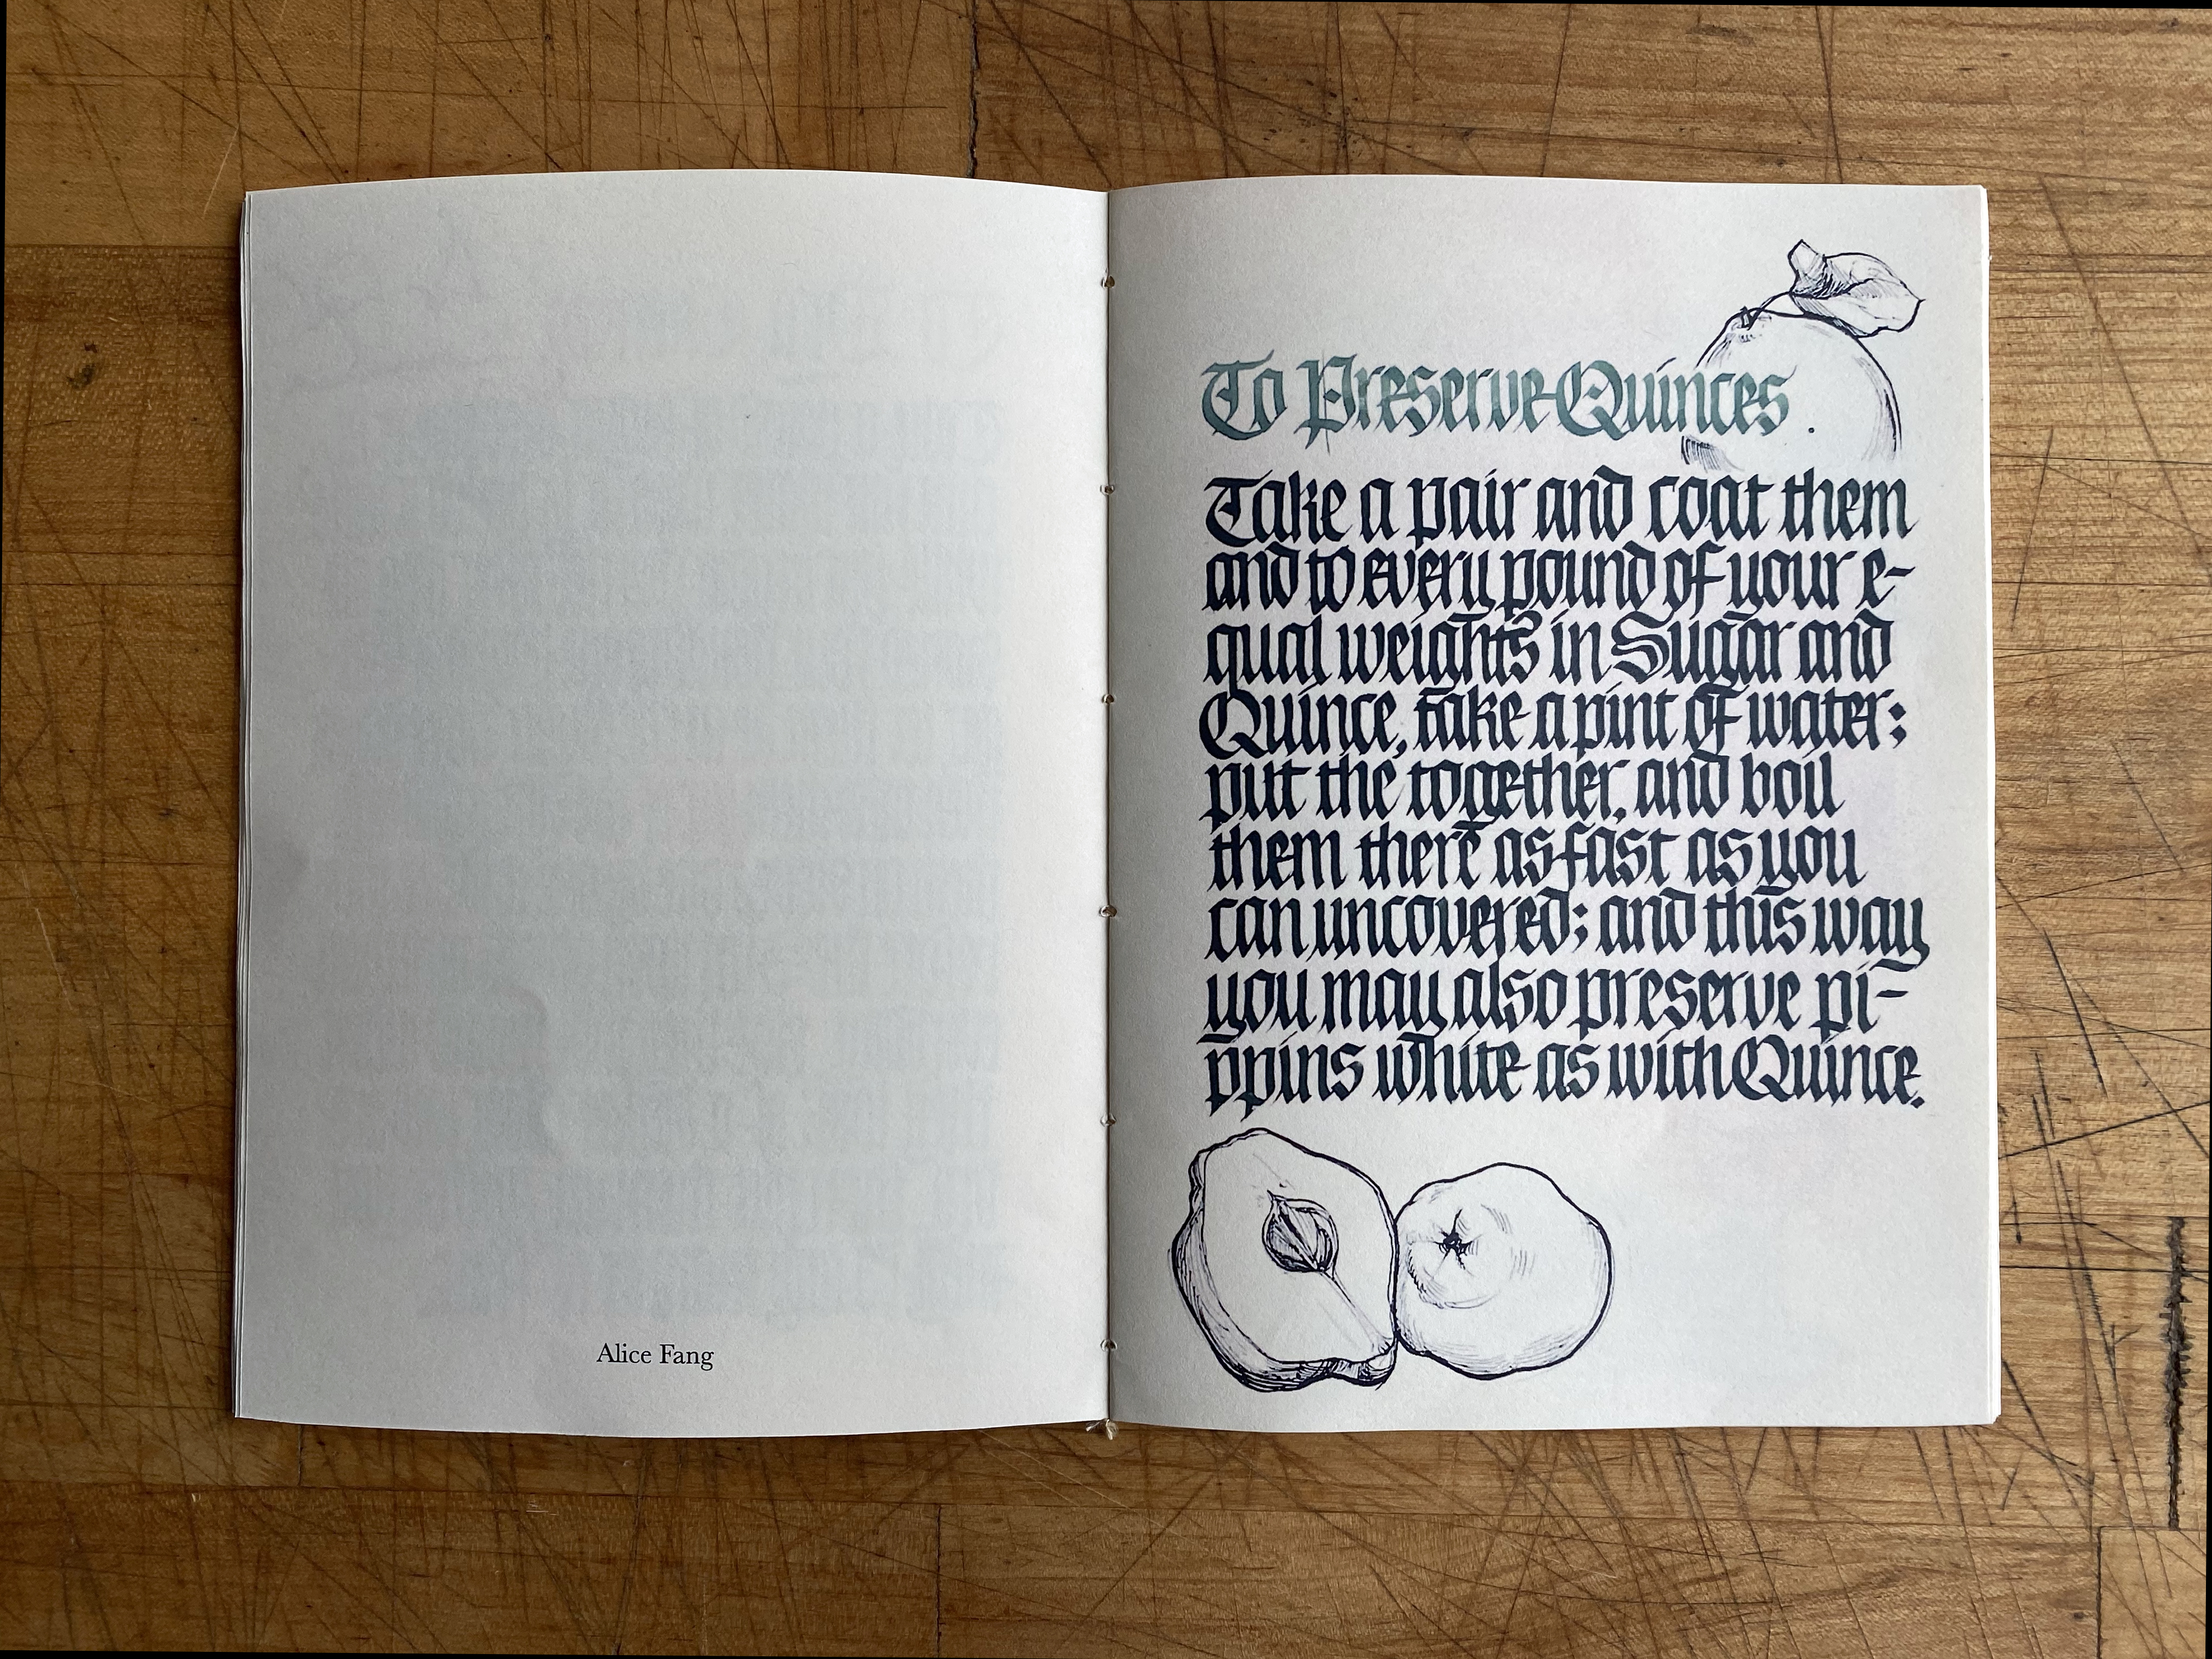 Alice Fang
To Preserve Quinces.
Take a pair and coat them
and to every pound of your e-
qual weights in Sugar and
Quince, take a pint of water;
put the together, and boil
them there as fast as you
can uncovered; and this way
you may also preserve pi-
ppins white as with Quince.